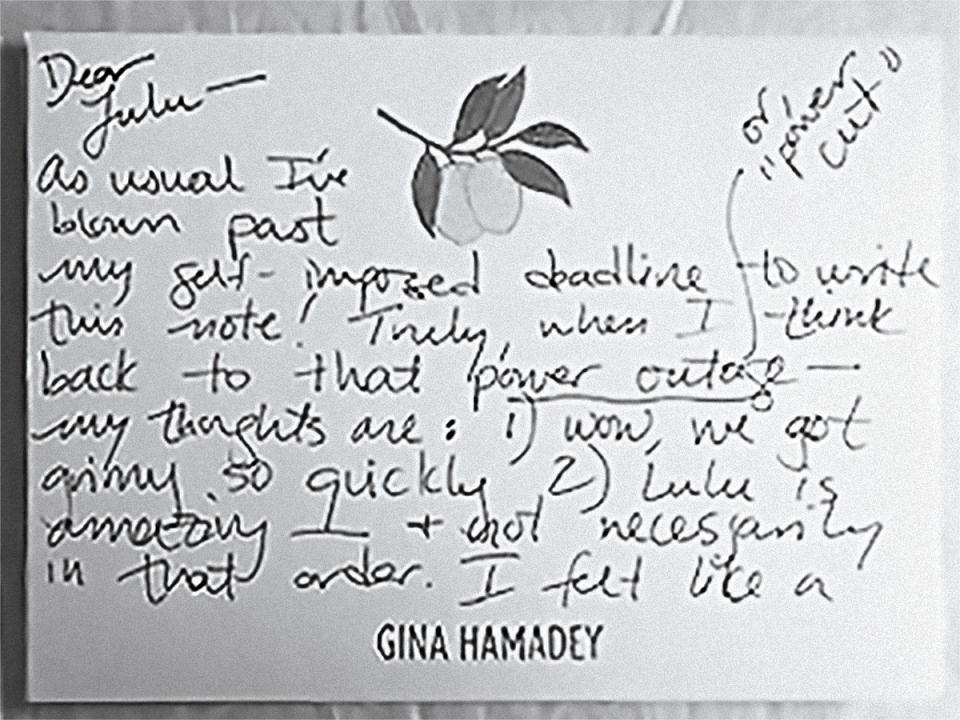 Dear
Lulu —
or, "power
cut"
As usual I've
blown past
my self-imposed deadline to write
this note! Truly, when I think
back to that power outage —
my thoughts are: 1) wow, we got
grimy so quickly 2) Lulu is
amazing — + not necessarily
in that order. I felt like a
GINA HAMADEY